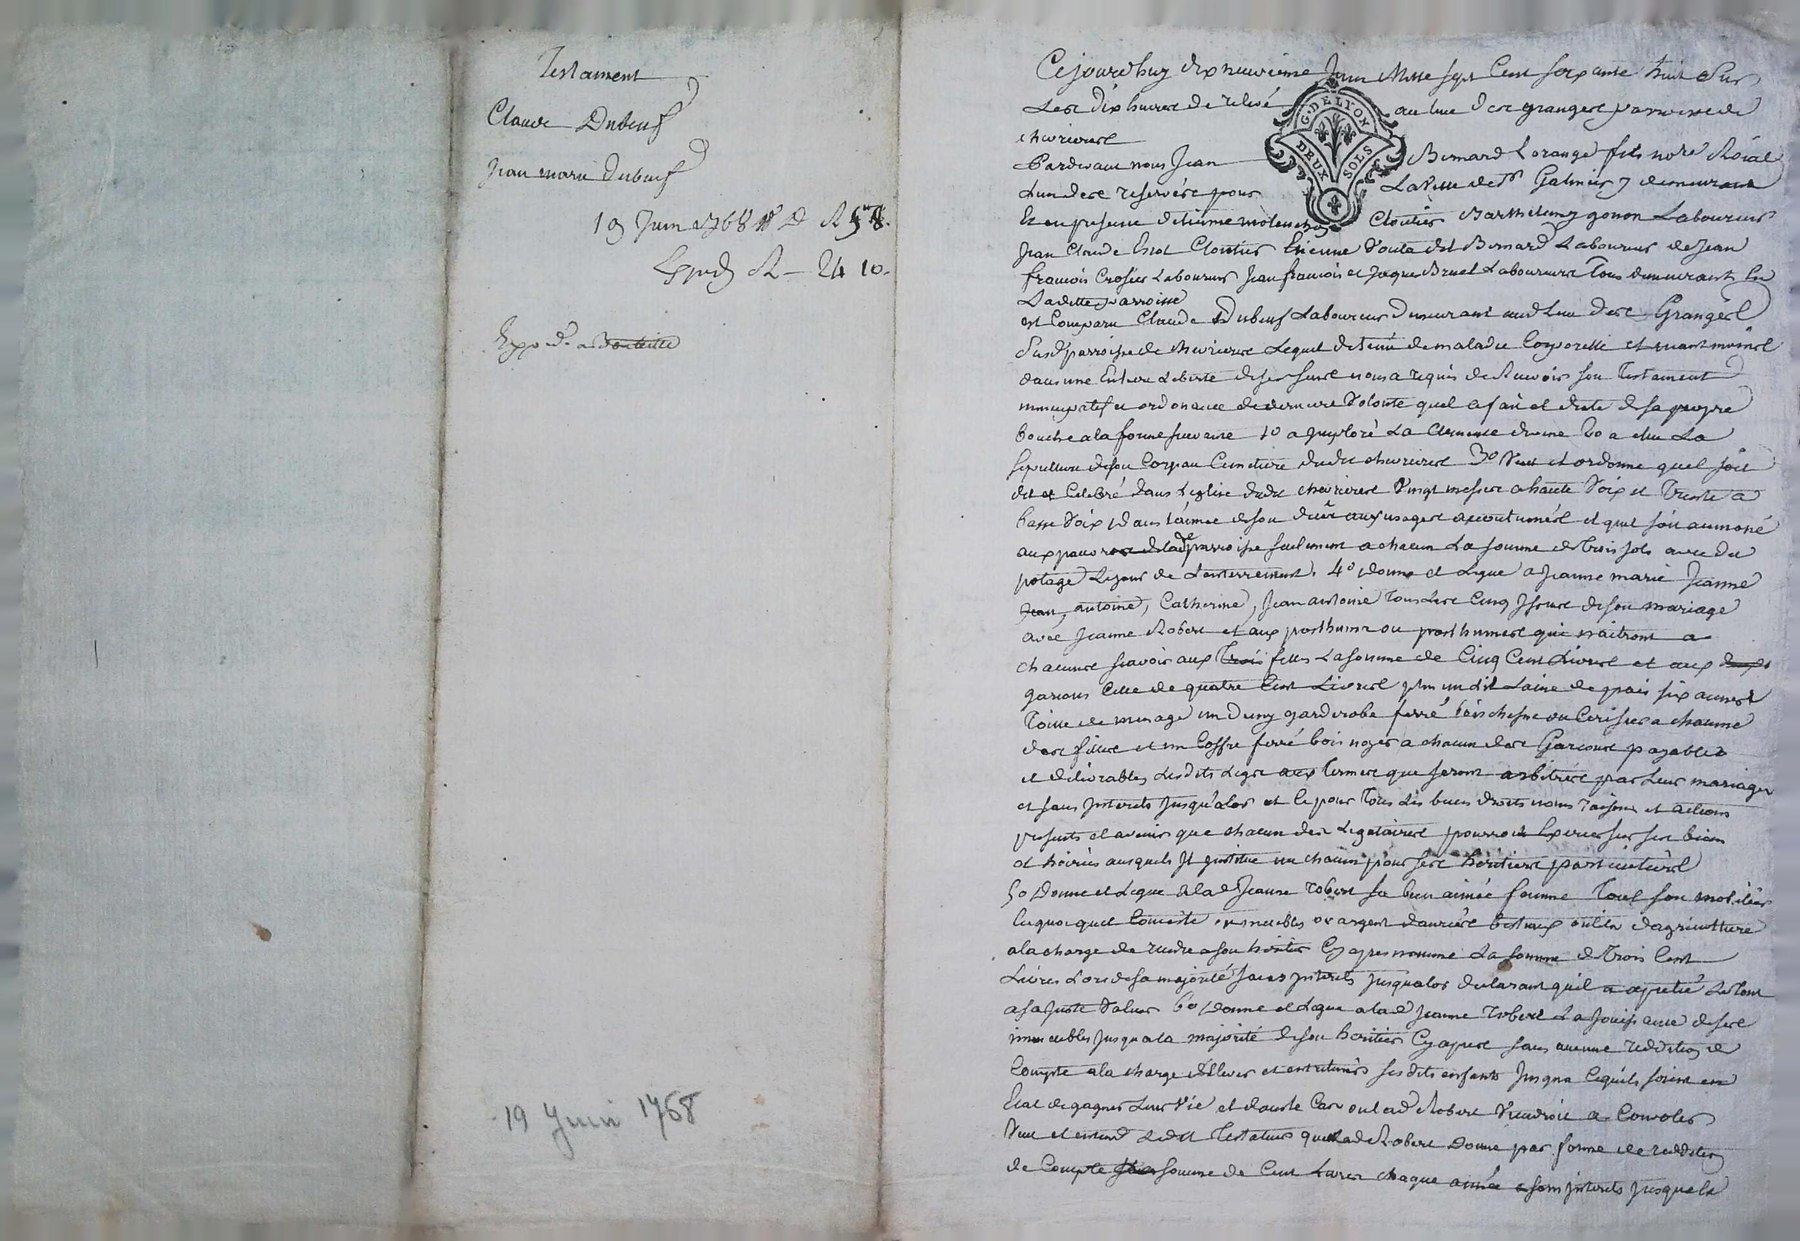 Testament
Claude Dubeuf
Jean marie Dubeuf
19 Juin 1768
Exped R — 24 10.
Exped.
19 Juin 1768
Cejourdhuy dix neuvieme Juin Mille sept Cent soixante huit sur
Les dix heures de relevé au lieu des granges parroisse de
chevrieres
G. DE LYON
DEUX SOLS
Pardevant nous Jean Bernard Lorange fils nore Roial
Lun des reservés pour La Ville de St Galmier y demeurant
Et en presence detienne Cloutier Barthelemy gonon Laboureur
Jean Claude Cloutier Etienne Bernard Laboureur de Jean
francois Crosier Laboureur Jean francois et Jaque Bruel Laboureurs Tous demeurants En
Laditte parroisse
est Comparu Claude Dubeuf Laboureur Demeurant audt Lieu des Granges
Susd parroisse de chevrieres Lequel detenu de maladie Corporelle et neantmoins
dans une Entiere Liberté de ses sens nous a requis de Recevoir son Testament
nuncupatif et ordonance de derniere Volonté quel a fait et dicté de sa propre
bouche a la forme suivante 1o a Imploré La Clemence divine 2o a elu La
sepulture de son Corps au Cimetiere dudit chevrieres 3o Veut et ordonne quel soit
dit et Celebré dans Leglise dudit chevrieres Vingt messes a haute Voix et Trente a
basse Voix dans Lannée de son decès aux usages accoutumés et quel soit aumoné
aux pauvres de lade parroisse seulement a chacun La somme de Trois sols avec du
potage Le jour de Lenterrement. 4o donne et Legue a Jeanne marie Jeanne
Jean, antoine, Catherine, Jean antoine Tous Les Cinq Issus de son mariage
avec Jeanne Robert et aux posthume ou posthumes qui naitront a
chacune scavoir aux Trois filles La somme de Cinq Cent Livres et aux
garcons Celle de quatre Cent Livres plus un dit Laine de pais six aunes
Toille de menage un garderobe ferré bois chesne ou Cerisier a chacune
des filles et un Coffre ferré bois noyer a chacun des Garcons payables
et delivrables Les dits Legs aux Termes que seront arbitrés par Leur mariage
et sans Interets Jusqu'alors et Ce pour Tous Les biens droits noms raisons et actions
presents et avenir que chacun des Legataires pourroit Exercer sur ses biens
et hoirie ausquels Il Institue un chacun pour ses heritiers particuliers
5o Donne et Legue a lade Jeanne robert sa bien aimée femme Tout son mobilier
En quoi quel Consiste, meubles or argent danrées bestiaux outils dagriculture
a la charge de rendre a son heritier Cy apres nommé La somme de Trois Cent
Livres Lors de sa majorité sans Interets Jusqualors declarant quil a apretié Le Tout
a sa Juste Valeur 6o donne et Legue a lade Jeanne robert La Jouissance de ses
immeubles Jusqua la majorité de son heritier Cy apres sans aucune reddition de
Compte a la charge dElever et entretenir ses dits enfants Jusqua Cequils soient en
Etat de gagner Leur Vie et dans le Cas ou Lad Robert Viendroit a Convoler
Veut et entend Ledit Testateur que Lade Robert Donne par forme de reddition
de Compte somme de Cent Livres chaque année sans Interets Jusqua la